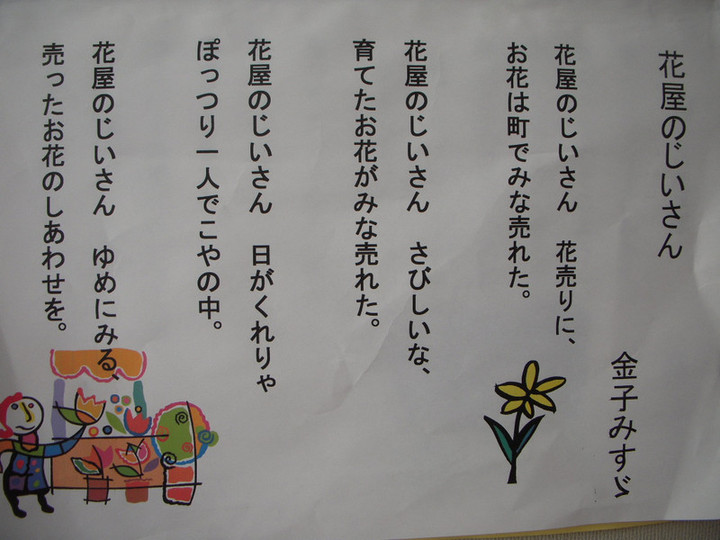 花屋のじいさん
金子みすゞ
花屋のじいさん　花売りに、
お花は町でみな売れた。
花屋のじいさん　さびしいな、
育てたお花がみな売れた。
花屋のじいさん　日がくれりゃ
ぽっつり一人でこやの中。
花屋のじいさん　ゆめにみる、
売ったお花のしあわせを。